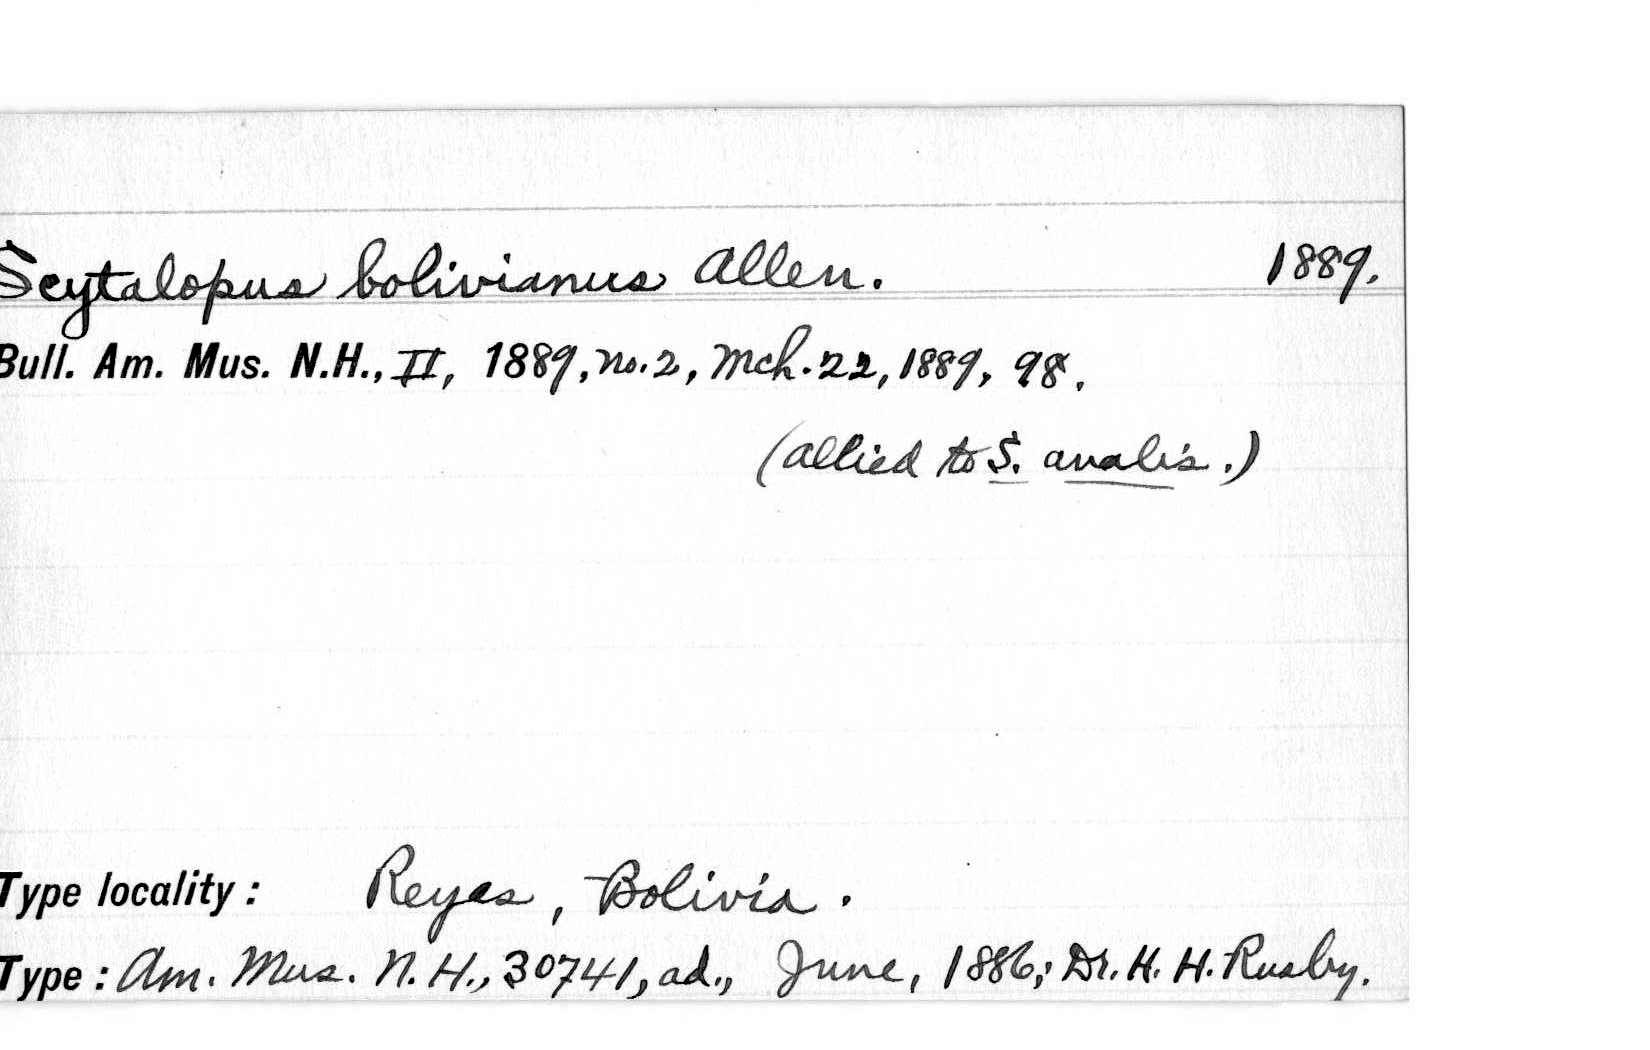 Scytalopus bolivianus Allen. 1889.
Bull. Am. Mus. N.H., II, 1889, no. 2, Mch. 22, 1889, 98.
(allied to S. analis.)
Type locality: Reyes, Bolivia.
Type: Am. Mus. N. H., 30741, ad., June, 1886; Dr. H. H. Rusby.